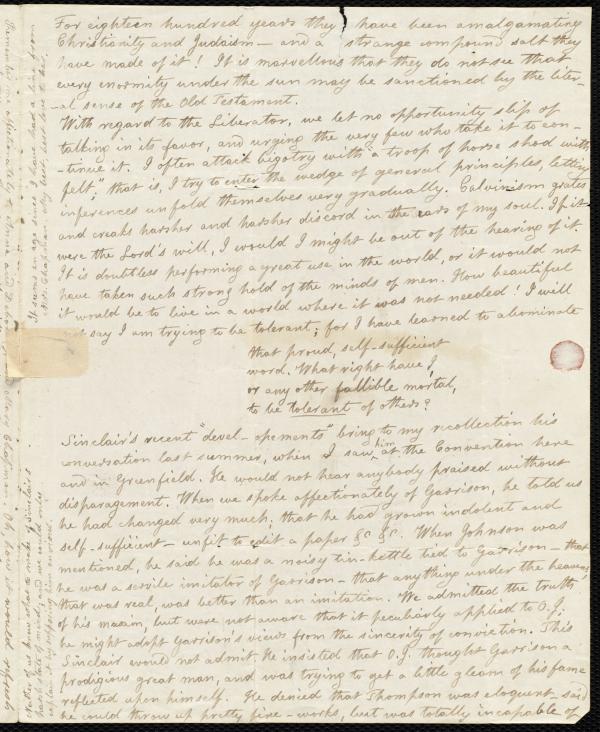 For eighteen hundred years they have been amalgamating
Christianity and Judaism — and a strange compound salt they
have made of it! It is marvellous that they do not see that
every enormity under the sun may be sanctioned by the liter-
-al sense of the Old Testament.
With regard to the Liberator, we let no opportunity slip of
talking in its favor, and urging the very few who take it to con-
-tinue it. I often attack bigotry with a troop of horse shod with
felt; that is, I try to enter the wedge of general principles, letting
inferences unfold themselves very gradually. Calvinism grates
and creaks harsher and harsher discord in the ears of my soul. If it
were the Lord's will, I would I might be out of the hearing of it.
It is doubtless performing a great use in the world, or it would not
have taken such strong hold of the minds of men. How beautiful
it would be to live in a world where it was not needed! I will
not say I am trying to be tolerant; for I have learned to abominate
that proud, self-sufficient
word. What right have I,
or any other fallible mortal,
to be tolerant of others?
Sinclair's recent "devel-opements" bring to my recollection his
conversation last summer, when I saw him at the Convention here
and in Greenfield. He would not hear anybody praised without
disparagement. When we spoke affectionately of Garrison, he told us
he had changed very much; that he had grown indolent and
self-sufficient — unfit to edit a paper &c &c. When Johnson was
mentioned, he said he was a noisy tin-kettle tied to Garrison — that
he was a servile imitator of Garrison — that anything under the heavens,
that was real, was better than an imitation. We admitted the truth
of his maxim, but were not aware that it peculiarly applied to O.J;
he might adopt Garrison's views from the sincerity of conviction. This
Sinclair would not admit. He insisted that O.J. thought Garrison a
prodigious great man, and was trying to get a little gleam of his fame
reflected upon himself. He denied that Thompson was eloquent — said
he could throw up pretty fire-works, but was totally incapable of
It seems an age since I have had a line from
Mrs. Chapman. My best, best love to her.
Remember me affectionately to
Neither of us know what to make of Sinclair's
state of mind, and we can only
explain it by supposing him